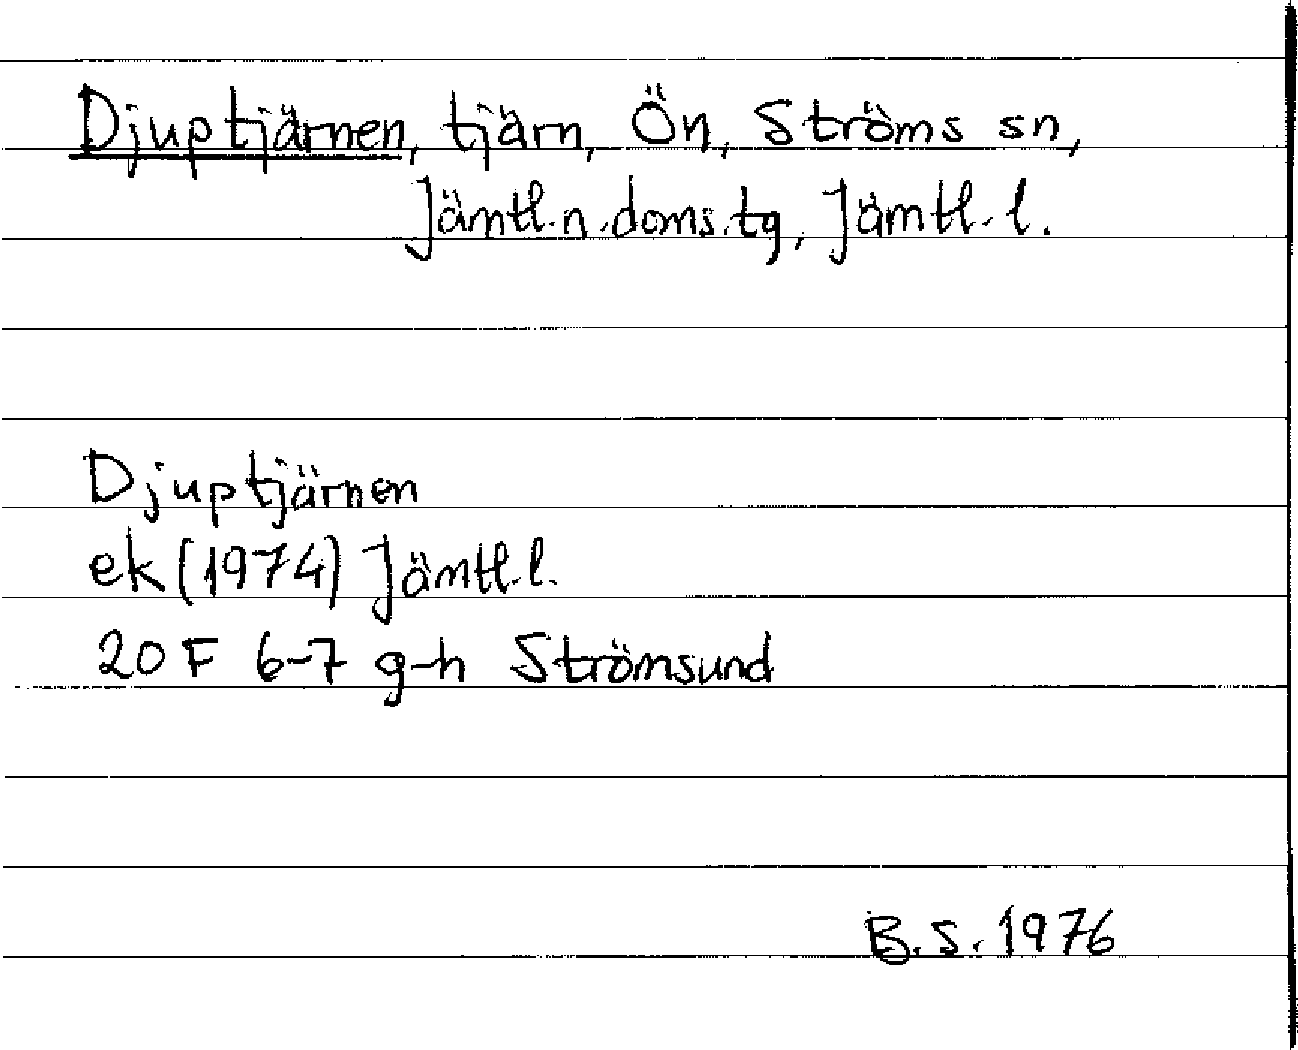 Djuptjärnen, tjärn, Ön, Ströms sn,
Jämtl.n.doms.tg, Jämtl.l.
Djuptjärnen
ek (1974) Jämtl.l.
20 F 6-7 g-h Strömsund
B.S. 1976